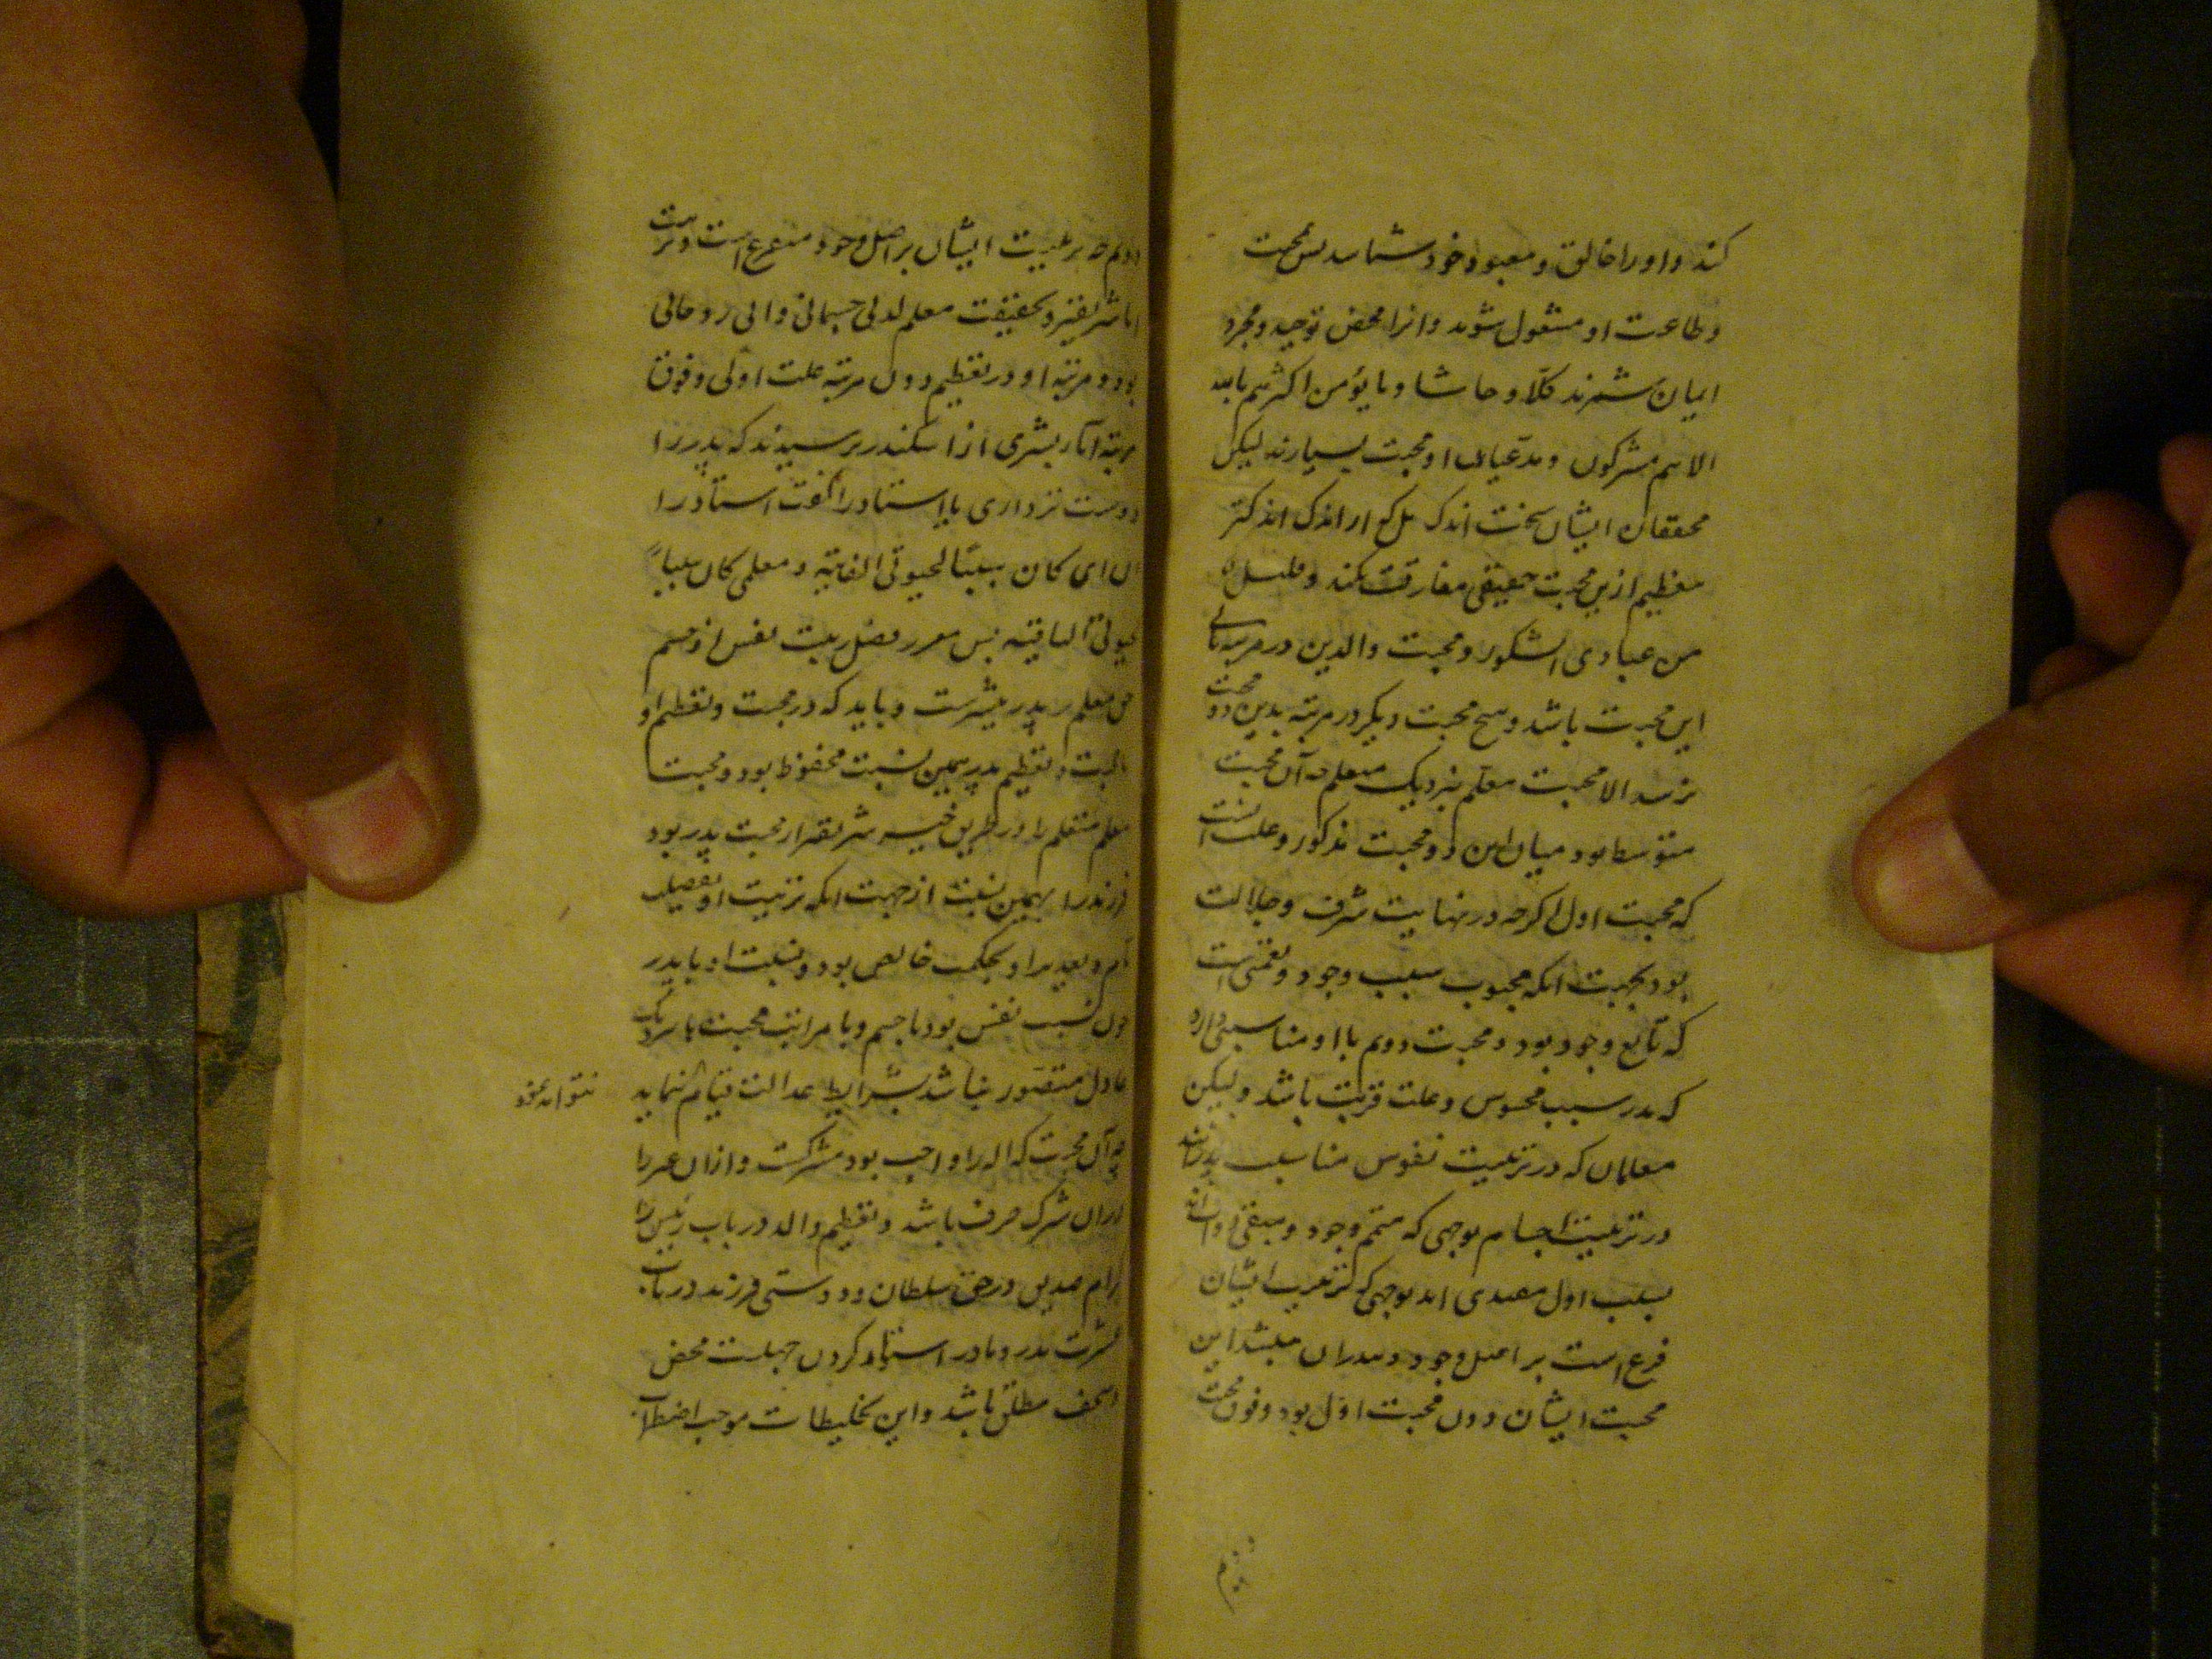 کند و او را خالق و معبود خود شناسد پس بمحبت
و طاعت او مشغول شوند و انرا محض توحید و مجرد
ایمان شمرند کلا و حاشا و ما یؤمن اکثرهم بالله
الا و هم مشرکون و مدعیان او محبت بسیارند لیکن
محققان ایشان سخت اندک بل کم از اندک اندکتر
تعظیم ازین محبت حقیقی مفارقت نکند و قلیل
من عبادی الشکور و محبت والدین در مرتبه تالی
این محبت باشد و هیچ محبت دیگر در مرتبه بدین دو محبت
نرسد الا محبت معلم نزدیک متعلم چه آن محبت
متوسط بود میان این دو محبت مذکور و علت آنست
که محبت اول اگرچه در نهایت شرف و جلالت
بود بجهت انکه محبوب سبب وجود و نعمتی است
که تابع وجود بود و محبت دوم با او مناسبتی دارد
که پدر سبب محسوس و علت قریب باشد و لیکن
معلمان که در تربیت نفوس مناسب پدرانند
در تربیت اجسام بوجهی که متمم وجود و مبقی ذوات‌اند
بسبب اول مقتدی اند بوجهی که تربیت ایشان
فرع است بر اصل وجود بپدران متشبه این
محبت ایشان دون محبت اول بود و فوق محبت
دویم
دوم چه تربیت ایشان بر اصل وجود متفرع است و تربیت
ابا شریفتر و بحقیقت معلم لدنی جسمانی و ابی روحانی
بود و مرتبه او در تعظیم دون مرتبه علت اولی و فوق
مرتبه آباء بشری از اسکندر پرسیدند که پدر را
دوست تر داری یا استاد را گفت استاد را
لان ابی کان سببا لحیوتی الفانیة و معلمی کان سببا
لحیوتی الباقیه پس بقدر فضل رتبت نفس از جسم
حق معلم از پدر بیشترست و باید که در محبت و تعظیم او
با محبت و تعظیم پدر همین نسبت محفوظ بود و محبت
معلم متعلم را در طریق خیر شریفتر از محبت پدر بود
فرزند را بهمین نسبت از جهت انکه تربیت او بفضیلت
تام و تغذیه او بحکمت خالص بود و نسبت او با پدر
چون نسبت نفس بود با جسم و تا مراتب محبت ها نزدیک
عادل متصور نباشد بشرایط عدالت قیام ننماید
نتواند نمود
چه آن محبت که اله را واجب بود شرکت دادن غیر را
در ان شرک صرف باشد و تعظیم والد در باب رئیس و
اکرام صدیق در حق سلطان و دوستی فرزند در باب
عشرت پدر و مادر استعمال کردن جهلت محض
و سخف مطلق باشد و این تخلیطات موجب اضطراب